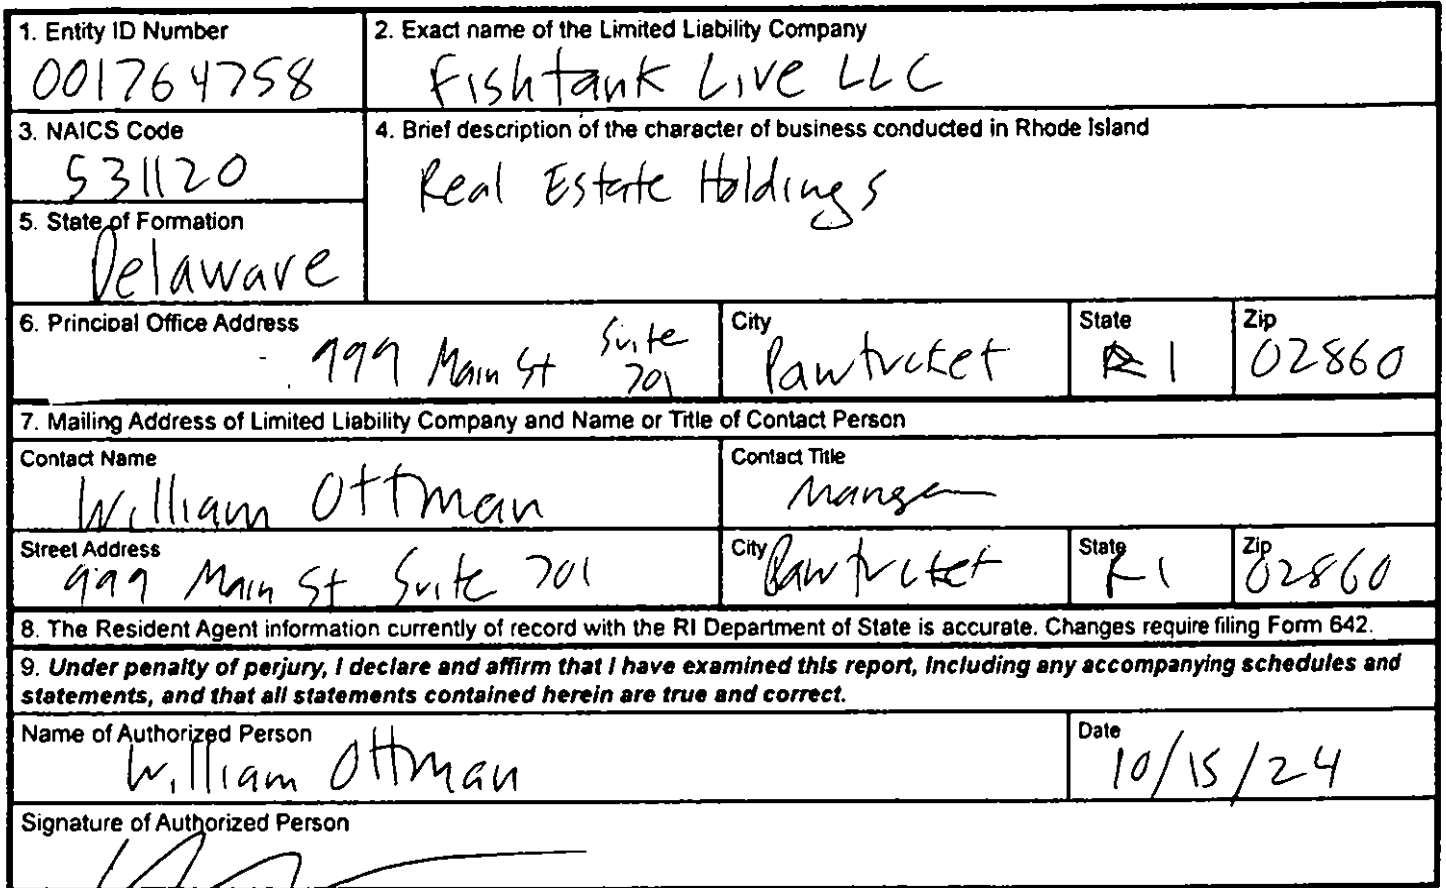 1. Entity ID Number
001764758
2. Exact name of the Limited Liability Company
Fishtank Live LLC
3. NAICS Code
531120
4. Brief description of the character of business conducted in Rhode Island
Real Estate Holdings
5. State of Formation
Delaware
6. Principal Office Address
999 Main St Suite 701
City
Pawtucket
State
RI
Zip
02860
7. Mailing Address of Limited Liability Company and Name or Title of Contact Person
Contact Name
William Ottman
Contact Title
Street Address
999 Main St Suite 701
City
Pawtucket
State
RI
Zip
02860
8. The Resident Agent information currently of record with the RI Department of State is accurate. Changes require filing Form 642.
9. Under penalty of perjury, I declare and affirm that I have examined this report, including any accompanying schedules and
statements, and that all statements contained herein are true and correct.
Name of Authorized Person
William Ottman
Date
10/15/24
Signature of Authorized Person